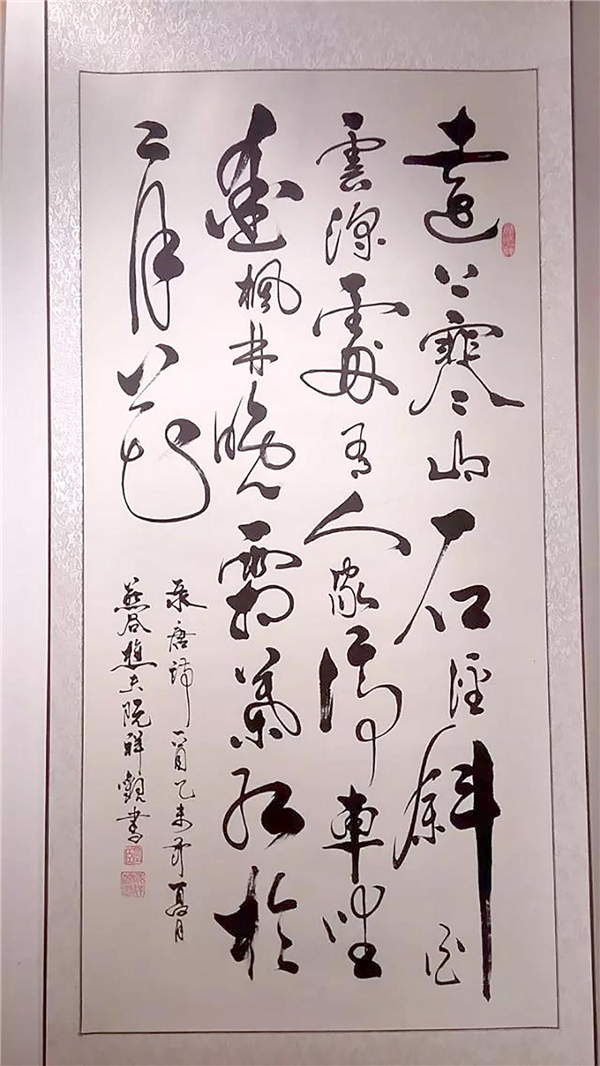 遠上寒山石徑斜白
雲深處有人家停車坐
愛楓林晚霜葉紅於
二月花
录唐詩一首乙未年夏月
燕谷樵夫阮祥觀書